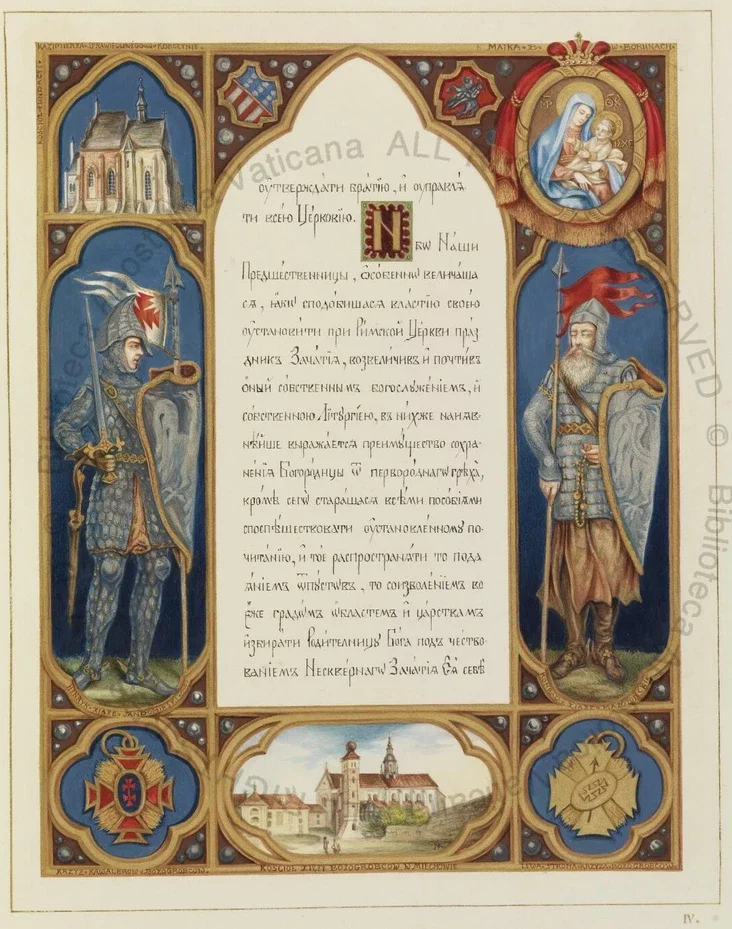 КАZIMIERZA SPRAWIEDLIWEGO W
MATKA
W BORUNACH
оу҆твержда́ти бра́тїю, и҆ оу҆правлѧ́
ти все́ю Це́рковїю.
N
бѡ На́ши
Предше́ственницы, ѡ҆со́беннѡ велича́ша
сѧ, ꙗ҆́кѡ сподо́бишасѧ вла́стїю свое́ю
оу҆станови́ти при Ри́мской Це́ркви пра́з
дникъ Зача́тїѧ, возвели́чивъ и҆ почти́въ
о҆́ный со́бственнымъ богослуже́нїемъ, и҆
со́бственною Лїтургі́ею, въ ни́хже наѧв-
нѣ́йше выража́етсѧ преиму́щество сохра-
не́нїѧ Богоро́дицы ѿ перворо́днагѡ грѣха̀,
кро́мѣ сегѡ̀ стара́шасѧ всѣ́ми посо́бїѧми
споспѣ́шествовати оу҆стано́вленному по-
чита́нїю, и҆ то́е распространѧ́ти то пода
ѧ́нїемъ ѿпу́стѡвъ, то соизволе́нїемъ во
є҆́же градѡ́мъ ѡ҆бластемъ и҆ ца́рствамъ
и҆збира́ти Роди́телницу Бо́га подъ че́ство-
ванїемъ Нескве́рнагѡ Зача́тїѧ Є҆ѧ̀ себѣ̀
KRZYŻ KAWALERÓW BOŻOGROBCÓW
KOŚCIÓŁ XIĘŻY BOŻOGROBCÓW W MIECHOWIE
STRONA KRZYŻA BOŻOGROBCÓW
IV.
Biblioteca Apostolica Vaticana ALL RIGHTS RESERVED © Biblioteca